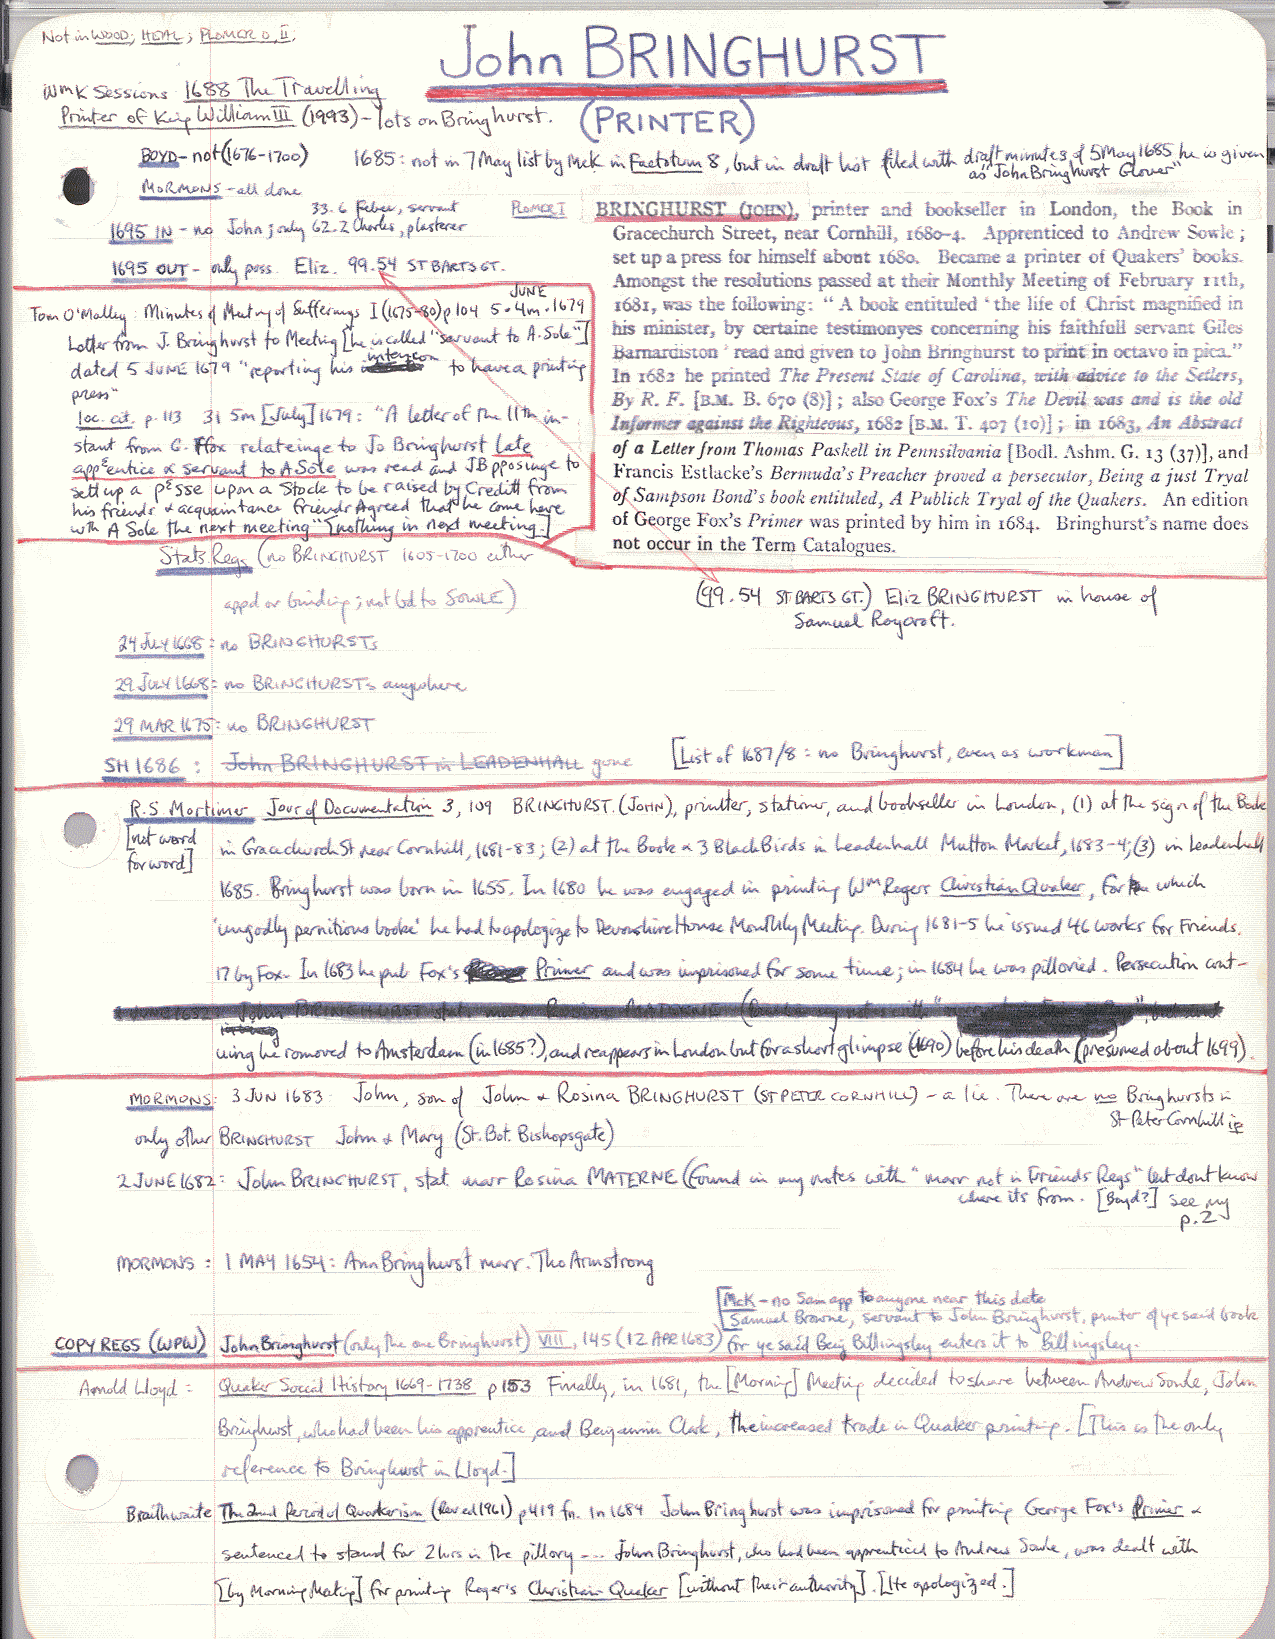 Not in WOOD; HEAL; PLOMER O, II;
John BRINGHURST
(PRINTER)
WmK Sessions 1688 The Travelling
Printer of King William III (1993) – lots on Bringhurst.
BOYD – not (1676-1700)
1685: not in 7 May list by McK in Factotum 8, but in draft list filed with draft minutes of 5 May 1685 he is given
as "John Bringhurst Glover"
MORMONS – all done
33.6 Feber, servant
1695 IN – no John; only 62.2 Charles, plasterer
1695 OUT – only poss. Eliz. 99.54 ST BARTS GT.
PLOMER I
BRINGHURST (JOHN), printer and bookseller in London, the Book in
Gracechurch Street, near Cornhill, 1680-4. Apprenticed to Andrew Sowle;
set up a press for himself about 1680. Became a printer of Quakers' books.
Amongst the resolutions passed at their Monthly Meeting of February 11th,
1681, was the following: "A book entituled 'the life of Christ magnified in
his minister, by certaine testimonyes concerning his faithfull servant Giles
Barnardiston' read and given to John Bringhurst to print in octavo in pica."
In 1682 he printed The Present State of Carolina, with advice to the Setlers,
By R. F. [B.M. B. 670 (8)]; also George Fox's The Devil was and is the old
Informer against the Righteous, 1682 [B.M. T. 407 (10)]; in 1683, An Abstract
of a Letter from Thomas Paskell in Pennsilvania [Bodl. Ashm. G. 13 (37)], and
Francis Estlacke's Bermuda's Preacher proved a persecutor, Being a just Tryal
of Sampson Bond's book entituled, A Publick Tryal of the Quakers. An edition
of George Fox's Primer was printed by him in 1684. Bringhurst's name does
not occur in the Term Catalogues.
JUNE
Tom O'Malley: Minutes of Meeting of Sufferings I (1675-80) p 104 5.4m.1679
Letter from J. Bringhurst to Meeting [he is called "servant to A. Sole"]
dated 5 JUNE 1679 "reporting his intencon to have a printing
press"
loc. cit. p. 113 31 5m [July] 1679: "A letter of the 11th in-
stant from G. Fox relateinge to Jo Bringhurst late
apprentice & servant to A Sole was read and JB pposinge to
sett up a psse upon a Stock to be raised by Creditt from
his friends & acquaintance friends Agreed that he come here
wth A Sole the next meeting" [nothing in next meeting.]
Stats. Regs (no BRINGHURST 1605-1700 either
appd or binding; not bd to SOWLE)
(99.54 ST BARTS GT.) Eliz BRINGHURST in house of
Samuel Roycroft.
24 JULY 1668: no BRINGHURSTs
29 JULY 1668: no BRINGHURSTs anywhere
29 MAR 1675: no BRINGHURST
SH 1686: John BRINGHURST in LEADENHALL gone
[List of 1687/8: no Bringhurst, even as workman]
R.S Mortimer Jour of Documentation 3, 109 BRINGHURST. (JOHN), printer, stationer, and bookseller in London, (1) at the sign of the Book
[not word for word]
in Gracechurch St near Cornhill, 1681-83; (2) at the Book & 3 Black Birds in Leadenhall Mutton Market, 1683-4; (3) in Leadenhall
1685. Bringhurst was born in 1655. In 1680 he was engaged in printing Wm Rogers Christian Quaker, for which
'ungodly pernitious booke' he had to apologize to Devonshire House Monthly Meeting. During 1681-5 he issued 46 works for Friends.
17 by Fox. In 1683 he pub Fox's Primer and was imprisoned for some time; in 1684 he was pilloried. Persecution cont-
uing he removed to Amsterdam (in 1685?), and reappears in London but for a short glimpse (1690) before his death (presumed about 1699).
MORMONS: 3 JUN 1683 John, son of John & Rosina BRINGHURST (ST PETER CORNHILL) – a lie. There are no Bringhursts in
St Peter Cornhill
only other BRINGHURST John & Mary (St. Bot. Bishopsgate)
2 JUNE 1682: John BRINGHURST, stat. marr Rosina MATERNE (Found in my notes with "marr not in Friends Regs" but dont know
where its from. [Boyd?] See my
p. 2
MORMONS: 1 MAY 1654: Ann Bringhurst marr. Tho Armstrong
[McK – no Sam app to anyone near this date
[Samuel Browne, servant to John Bringhurst, printer of ye said book
COPY REGS (WPW) John Bringhurst (only the one Bringhurst) VIII, 145 (12 APR 1683) for ye said Benj Billingsley enters it to Billingsley.
Arnold Lloyd: Quaker Social History 1669-1738 p 153 Finally, in 1681, the [Morning] Meeting decided to share between Andrew Sowle, John
Bringhurst, who had been his apprentice, and Benjamin Clark, the increased trade in Quaker printing. [This is the only
reference to Bringhurst in Lloyd.]
Braithwaite The 2nd Period of Quakerism (Rev ed 1961) p 419 fn. In 1684 John Bringhurst was imprisoned for printing George Fox's Primer &
sentenced to stand for 2 hrs in the pillory --- John Bringhurst, who had been apprenticed to Andrew Sowle, was dealt with
[by Morning Meeting] for printing Roger's Christian Quaker [without their authority]. [He apologized.]